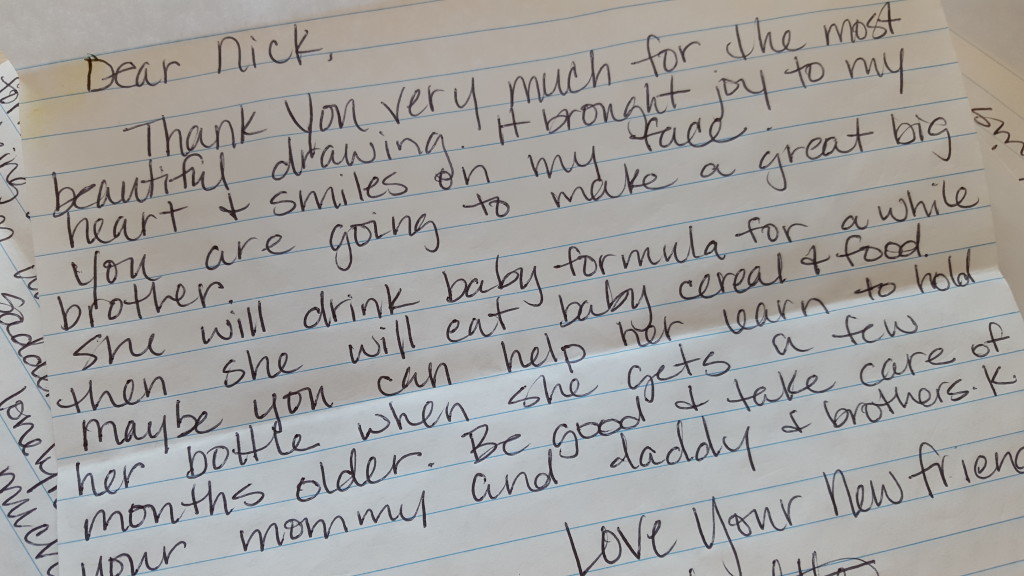 Dear Nick,
Thank You very much for the most
beautiful drawing. it brought joy to my
heart & smiles on my face.
You are going to make a great big
brother.
She will drink baby formula for a while
then she will eat baby cereal & food.
maybe you can help her learn to hold
her bottle when she gets a few
months older. Be good & take care of
your mommy and daddy & brothers. K
Love Your New friend